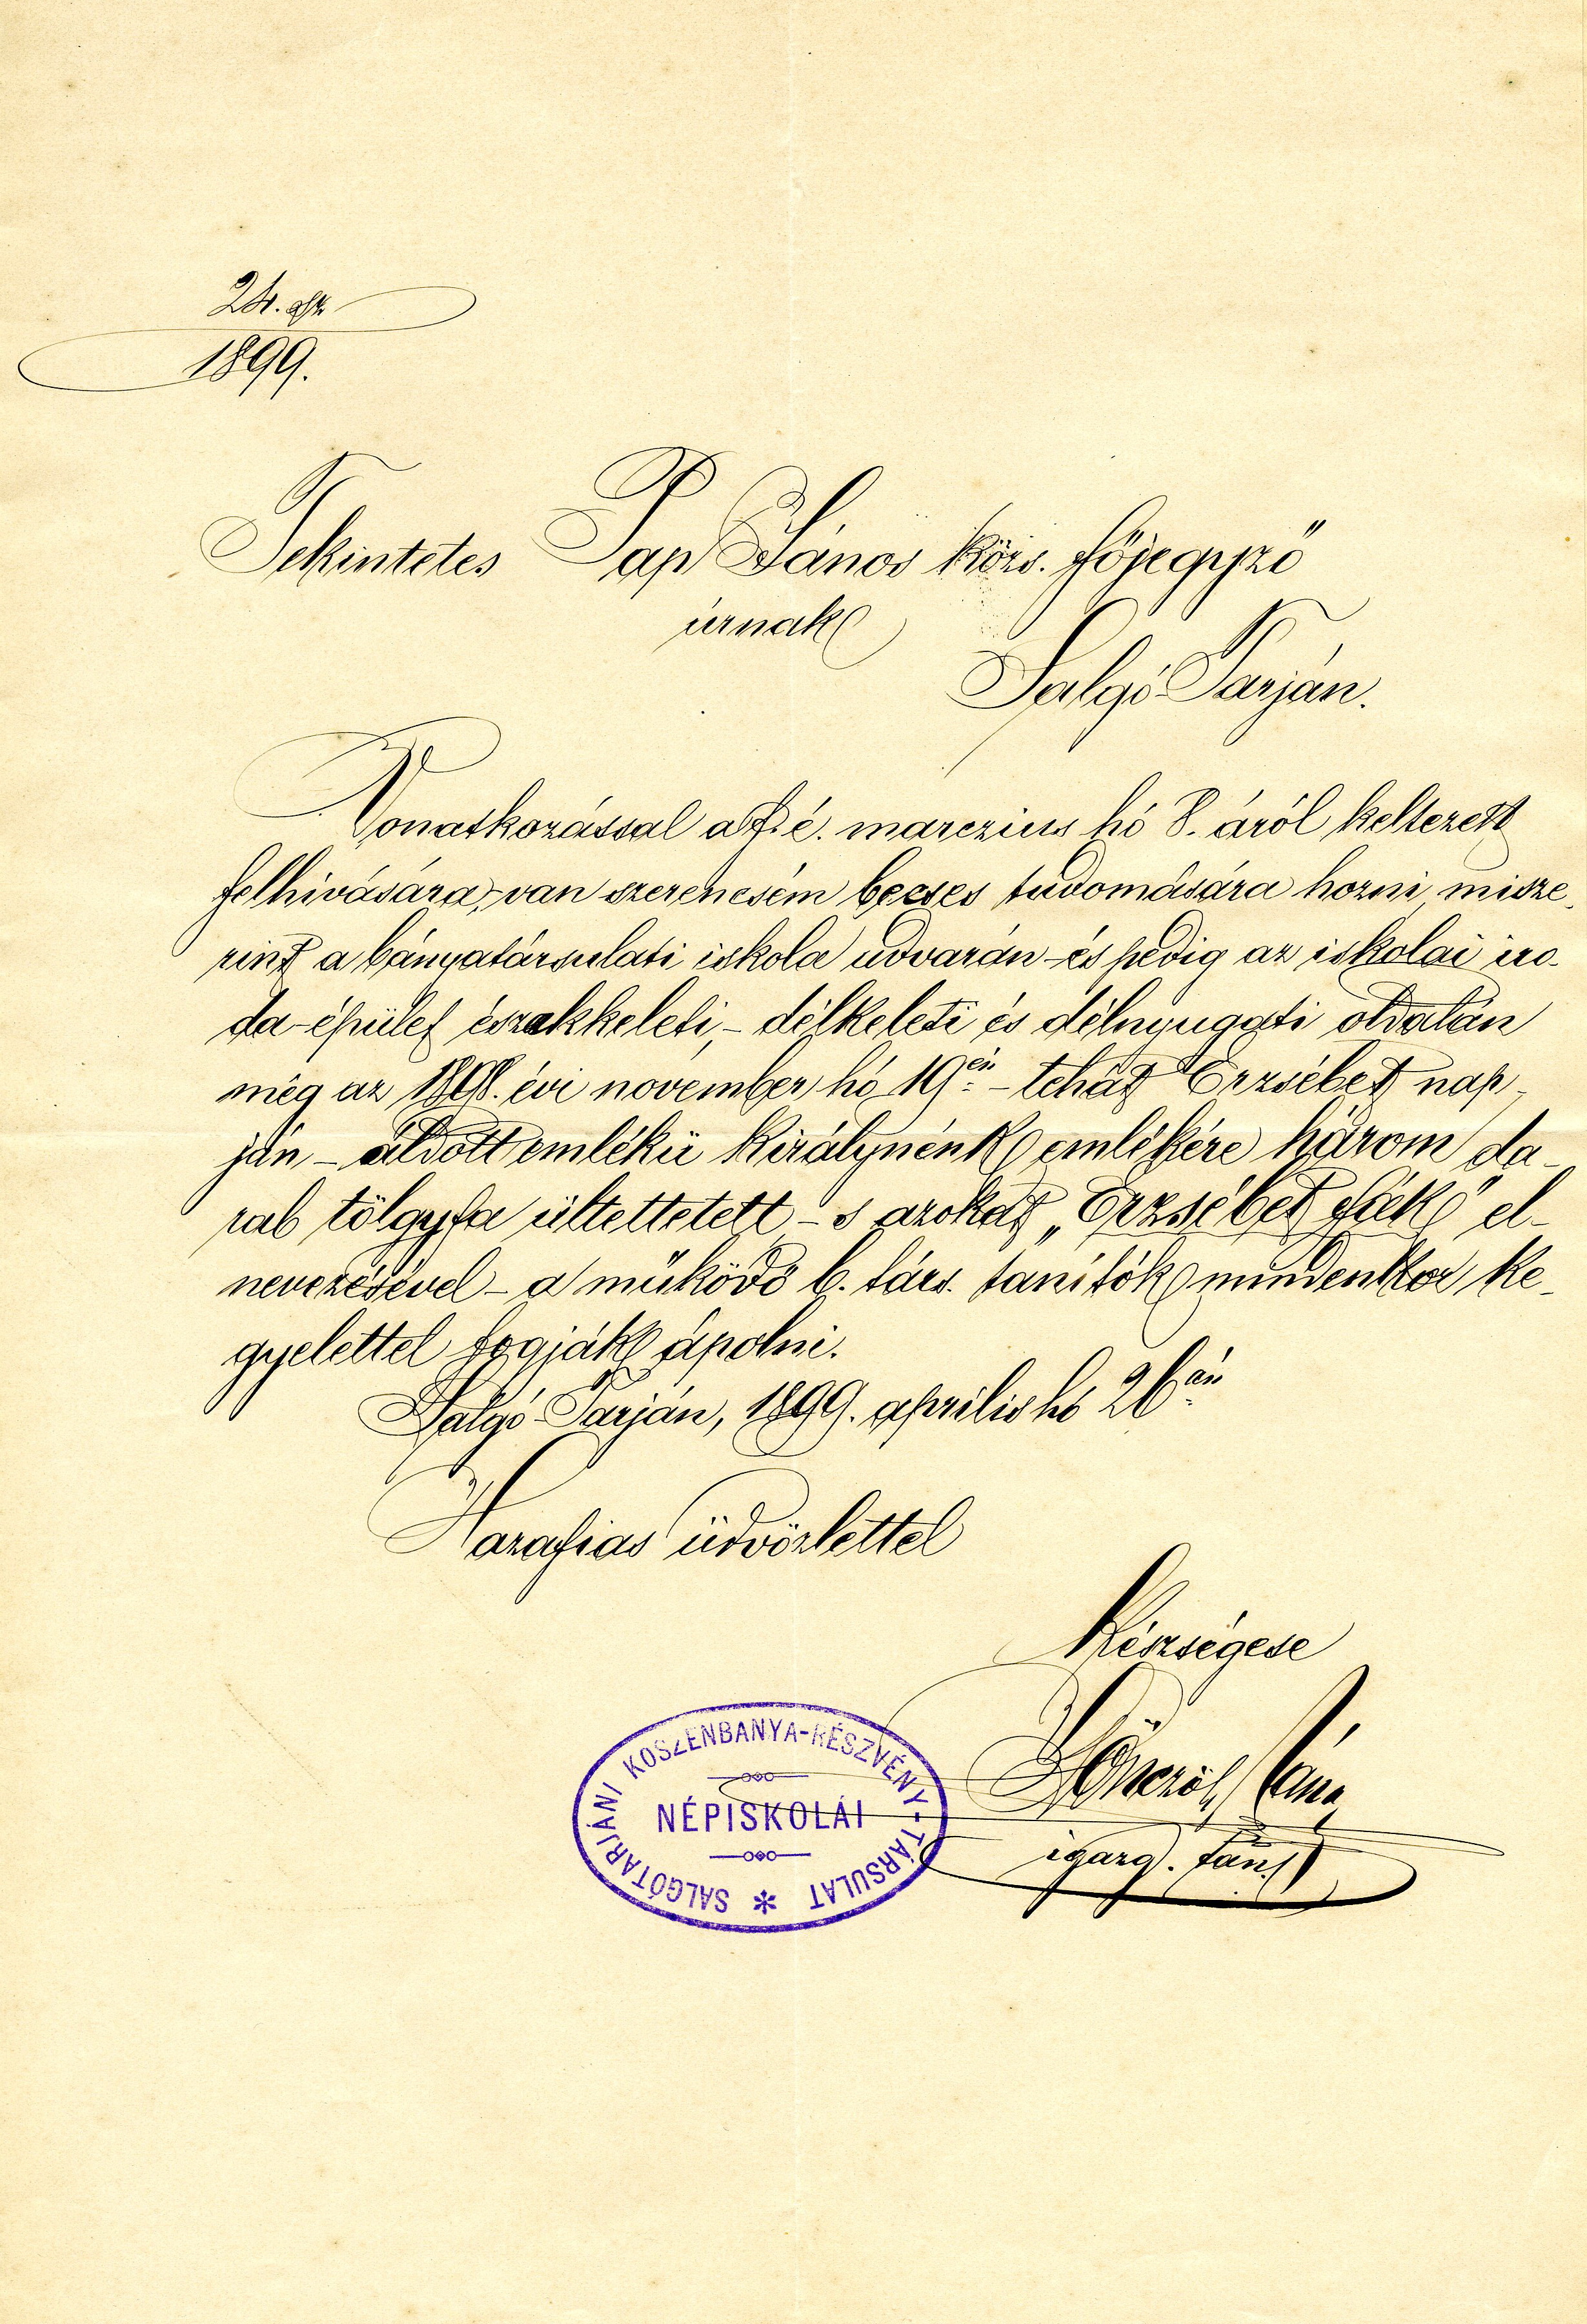 24. szh
1899.
Tekintetes Pap János közs. főjegyző
úrnak
Salgó-Tarján.
Vonatkozással a f. é. marczius hó 8. áról keltezett
felhivására, van szerencsém becses tudomására hozni, misze-
rint a bányatársulati iskola udvarán és pedig az iskolai iro-
da-épület északkeleti,- délkeleti és délnyugati oldalán
még az 1898. évi november hó 19én - tehát Erzsébet nap-
ján - áldott emlékü Királynénk emlékére három da-
rab tölgyfa ültettetett - s azokat „Erzsébet fák" el-
nevezésével - a működő b. társ. tanítók mindenkor ke-
gyelettel fogják ápolni.
Salgó-Tarján, 1899. április hó 26án
Hazafias üdvözlettel
Készségese
János
igazg. tanító
SALGÓTARJÁNI KŐSZÉNBÁNYA-RÉSZVÉNY-TÁRSULAT
NÉPISKOLÁI